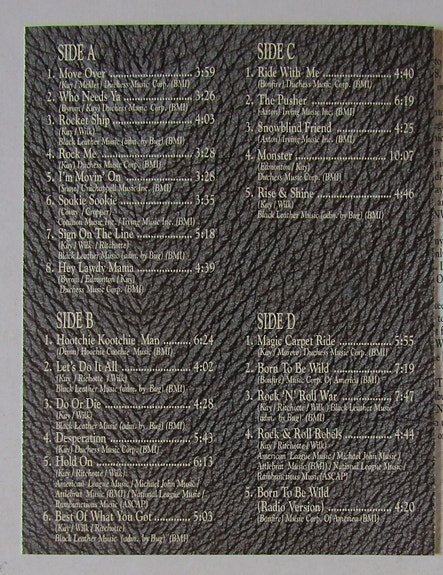 SIDE A
1. Move Over 3:59
(Kay / Mekler) Duchess Music Corp. (BMI)
2. Who Needs Ya 3:26
(Byrom / Kay) Duchess Music Corp. (BMI)
3. Rocket Ship 4:03
(Kay / Wilk)
Black Leather Music (adm. by Bug) (BMI)
4. Rock Me 3:28
(Kay) Duchess Music Corp. (BMI)
5. I'm Movin' On 3:28
(Snow) Unichappell Music Inc. (BMI)
6. Sookie Sookie 3:35
(Covay / Cropper)
Cotillion Music Inc. / Irving Music Inc. (BMI)
7. Sign On The Line 5:18
(Kay / Wilk / Ritchotte)
Black Leather Music (adm. by Bug) (BMI)
8. Hey Lawdy Mama 4:39
(Byrom / Edmonton / Kay)
Duchess Music Corp. (BMI)
SIDE B
1. Hootchie Kootchie Man 6:24
(Dixon) Hoochie Coochie Music (BMI)
2. Let's Do It All 4:02
(Kay / Ritchotte / Wilk)
Black Leather Music (adm. by Bug) (BMI)
3. Do Or Die 4:28
(Kay / Wilk)
Black Leather Music (adm. by Bug) (BMI)
4. Desperation 5:43
(Kay) Duchess Music Corp. (BMI)
5. Hold On 6:13
(Kay / Ritchotte / Wilk)
American League Music / Michael John Music /
Music (BMI) / National League Music /
Rambunctious Music (ASCAP)
6. Best Of What You Got 5:03
(Kay / Wilk / Ritchotte)
Black Leather Music (adm. by Bug) (BMI)
SIDE C
1. Ride With Me 4:40
(Bonfire) Duchess Music Corp. (BMI)
2. The Pusher 6:19
(Axton) Irving Music Inc. (BMI)
3. Snowblind Friend 4:25
(Axton) Irving Music Inc. (BMI)
4. Monster 10:07
(Edmonton / Kay)
Duchess Music Corp. (BMI)
5. Rise & Shine 4:46
(Kay / Wilk)
Black Leather Music (adm. by Bug) (BMI)
SIDE D
1. Magic Carpet Ride 5:55
(Kay / Moreve) Duchess Music Corp. (BMI)
2. Born To Be Wild 7:19
(Bonfire) Music Corp. Of America (BMI)
3. Rock 'N' Roll War 7:47
(Kay / Ritchotte / Wilk) Black Leather Music
(adm. by Bug) (BMI)
4. Rock & Roll Rebels 4:44
(Kay / Ritchotte / Wilk)
American League Music / Michael John Music /
Music (BMI) / National League Music /
Rambunctious Music (ASCAP)
5. Born To Be Wild
(Radio Version) 4:20
(Bonfire) Music Corp. Of America (BMI)